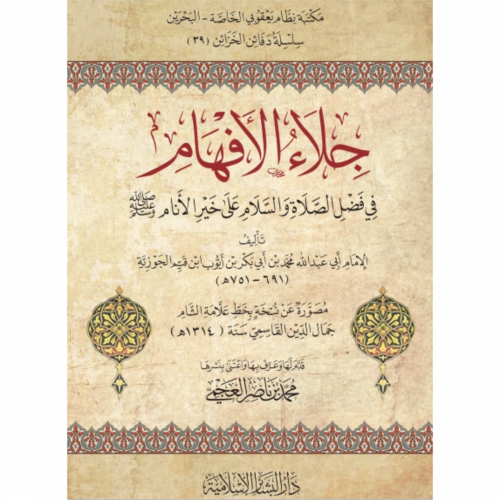 مكتبة نظام يعقوبي الخاصة - البحرين
سلسلة دفائن الخزائن (٣٩)
جِلَاءُ الأَفْهَامِ
في فَضْلِ الصَّلَاةِ وَالسَّلَامِ عَلَى خَيْرِ الأَنَامِ ﷺ
تَأْلِيفُ
الإِمَامِ أَبِي عَبْدِ اللهِ مُحَمَّدِ بْنِ أَبِي بَكْرِ بْنِ أَيُّوبَ ابْنِ قَيِّمِ الْجَوْزِيَّةِ
(٦٩١ - ٧٥١هـ)
مُصَوَّرَةٌ عَنْ نُسْخَةٍ بِخَطِّ عَلَّامَةِ الشَّامِ
جَمَالِ الدِّينِ الْقَاسِمِيِّ سَنَةَ (١٣١٤هـ)
قَدَّمَ لَهَا وَعَرَّفَ بِهَا وَاعْتَنَى بِنَشْرِهَا
محمد بن ناصر العجمي
دار البشائر الإسلامية